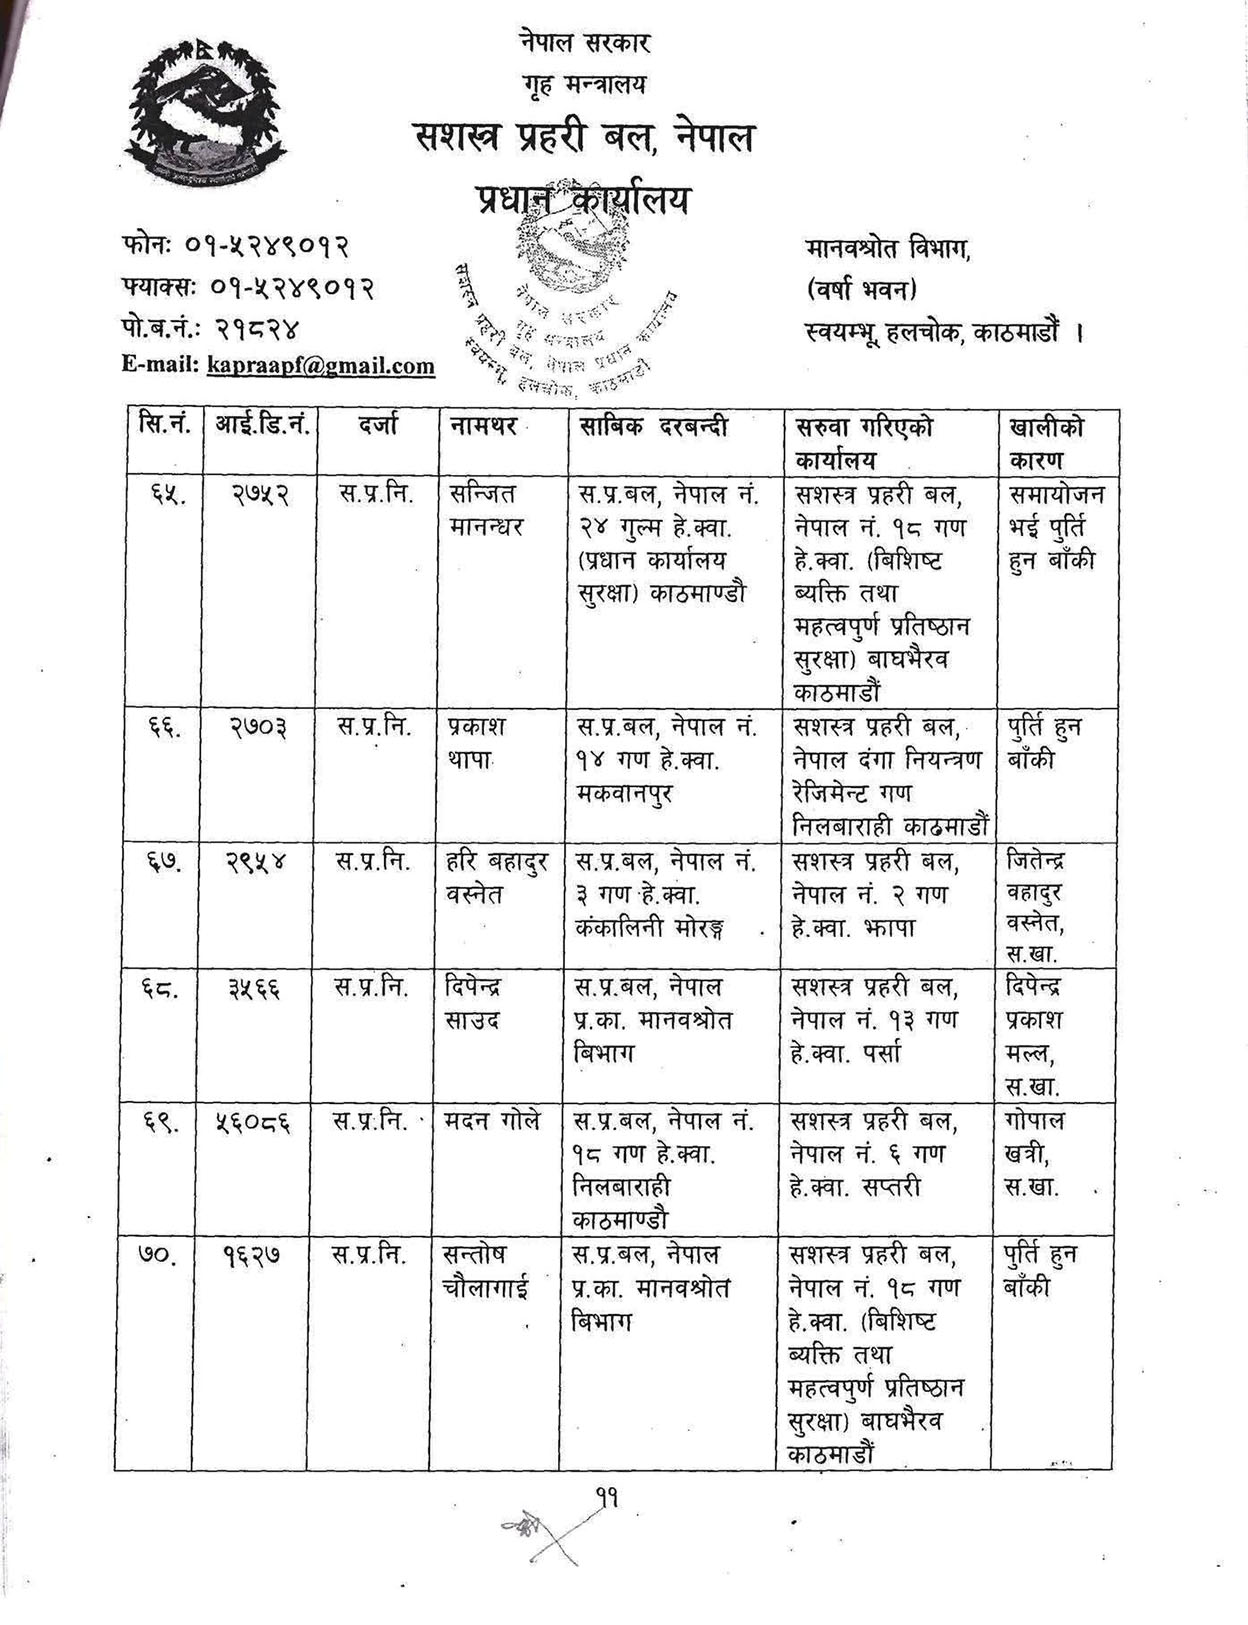 नेपाल सरकार
गृह मन्त्रालय
सशस्त्र प्रहरी बल, नेपाल
प्रधान कार्यालय
फोनः ०१-५२४९०१२
फ्याक्सः ०१-५२४९०१२
पो.ब.नं.: २१८२४
E-mail: kapraapf@gmail.com
मानवश्रोत विभाग,
(वर्षा भवन)
स्वयम्भू, हलचोक, काठमाडौं ।
नेपाल सरकार
गृह मन्त्रालय
सशस्त्र प्रहरी बल, नेपाल प्रधान कार्यालय
स्वयम्भू, हलचोक, काठमाडौं
सि.नं. आई.डि.नं. दर्जा नामथर साबिक दरबन्दी सरुवा गरिएको खालीको
कार्यालय कारण
६५. २७५२ स.प्र.नि. सन्जित स.प्र.बल, नेपाल नं. सशस्त्र प्रहरी बल, समायोजन
मानन्धर २४ गुल्म हे.क्वा. नेपाल नं. १८ गण भई पुर्ति
(प्रधान कार्यालय हे.क्वा. (बिशिष्ट हुन बाँकी
सुरक्षा) काठमाण्डौ ब्यक्ति तथा
महत्वपुर्ण प्रतिष्ठान
सुरक्षा) बाघभैरव
काठमाडौं
६६. २७०३ स.प्र.नि. प्रकाश स.प्र.बल, नेपाल नं. सशस्त्र प्रहरी बल, पुर्ति हुन
थापा १४ गण हे.क्वा. नेपाल दंगा नियन्त्रण बाँकी
मकवानपुर रेजिमेन्ट गण
निलबाराही काठमाडौं
६७. २९५४ स.प्र.नि. हरि बहादुर स.प्र.बल, नेपाल नं. सशस्त्र प्रहरी बल, जितेन्द्र
वस्नेत ३ गण हे.क्वा. नेपाल नं. २ गण वहादुर
कंकालिनी मोरङ्ग हे.क्वा. झापा वस्नेत,
स.खा.
६८. ३५६६ स.प्र.नि. दिपेन्द्र स.प्र.बल, नेपाल सशस्त्र प्रहरी बल, दिपेन्द्र
साउद प्र.का. मानवश्रोत नेपाल नं. १३ गण प्रकाश
बिभाग हे.क्वा. पर्सा मल्ल,
स.खा.
६९. ५६०८६ स.प्र.नि. मदन गोले स.प्र.बल, नेपाल नं. सशस्त्र प्रहरी बल, गोपाल
१८ गण हे.क्वा. नेपाल नं. ६ गण खत्री,
निलबाराही हे.क्वा. सप्तरी स.खा.
काठमाण्डौ
७०. १६२७ स.प्र.नि. सन्तोष स.प्र.बल, नेपाल सशस्त्र प्रहरी बल, पुर्ति हुन
चौलागाई प्र.का. मानवश्रोत नेपाल नं. १८ गण बाँकी
बिभाग हे.क्वा. (बिशिष्ट
ब्यक्ति तथा
महत्वपुर्ण प्रतिष्ठान
सुरक्षा) बाघभैरव
काठमाडौं
११